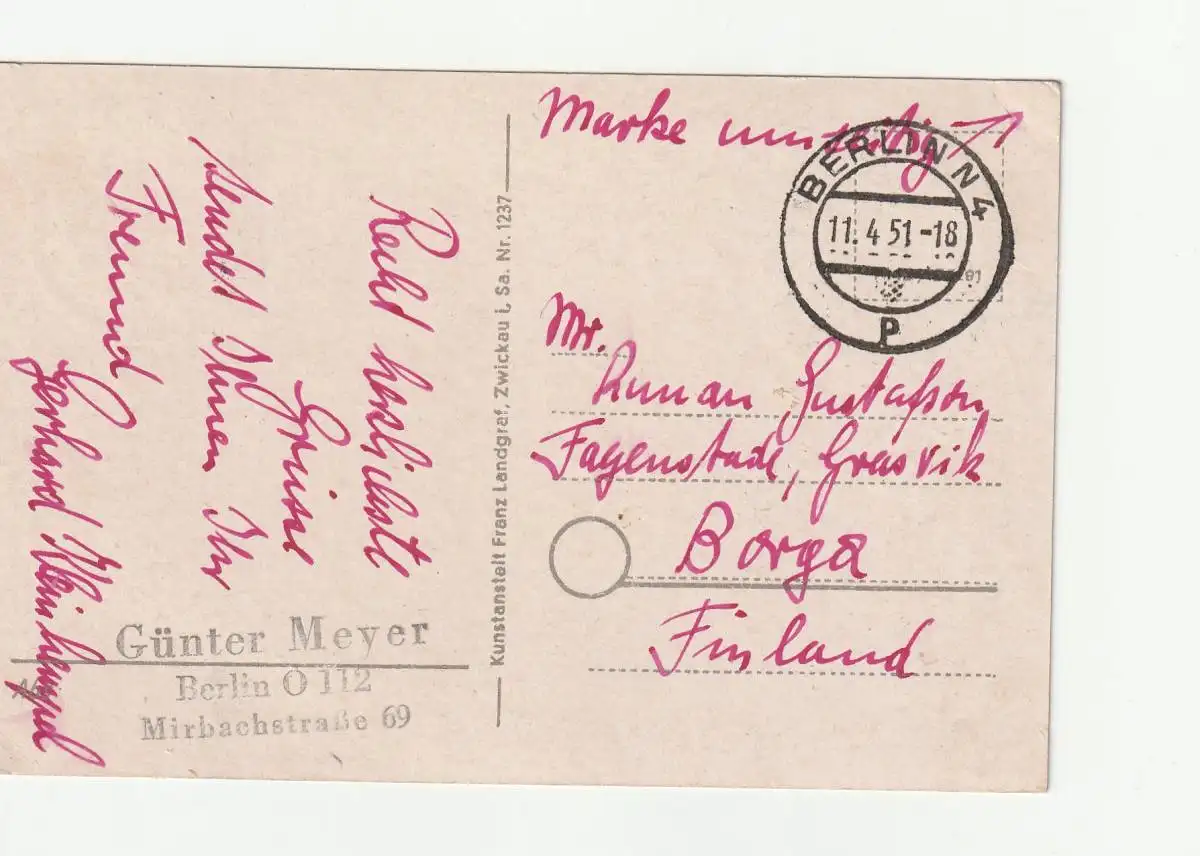 Marke umseitig
BERLIN N 4
11. 4 51 -18
P
Mr.
Runar Gustafsson,
Fagerstade, Grasvik
Borga
Finland
Recht herzlichste
Grüsse
sendet Ihnen Ihr
Freund
Gerhard
Kunstanstalt Franz Landgraf, Zwickau i. Sa. Nr. 1237
Günter Meyer
Berlin O 112
Mirbachstraße 69